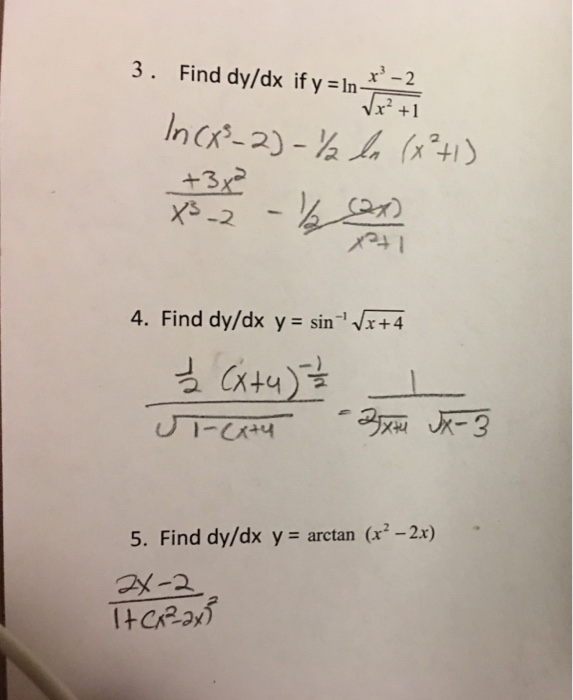 3. Find dy/dx if y = ln (x³ − 2)/√(x² + 1)
ln(x³−2) − ½ ln (x²+1)
+3x²/(x³−2) − ½ (2x)/(x²+1)
4. Find dy/dx y = sin⁻¹ √(x+4)
½ (x+4)^(−½)/√(1−(x+4) = 1/(2√(x+4) √(x−3))
5. Find dy/dx y = arctan (x² − 2x)
(2x−2)/(1+(x²−2x)²)